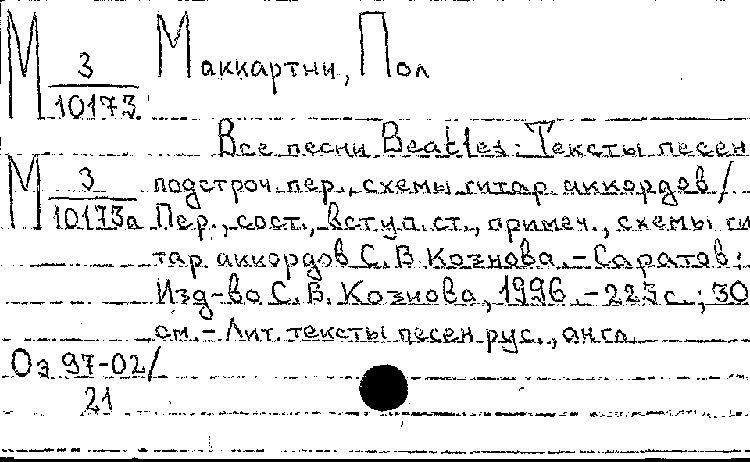 М 3/10173 Маккартни, Пол
Все песни Beatles: Тексты песен
М 3/10173а подстроч. пер., схемы гитар. аккордов /
Пер., сост., вступ. ст., примеч., схемы ги
тар. аккордов С. В. Кознова. - Саратов:
Изд-во С. В. Кознова, 1996. - 223 с.; 30
см. - Лит. тексты песен рус., англ.
Оэ 97-02/
21